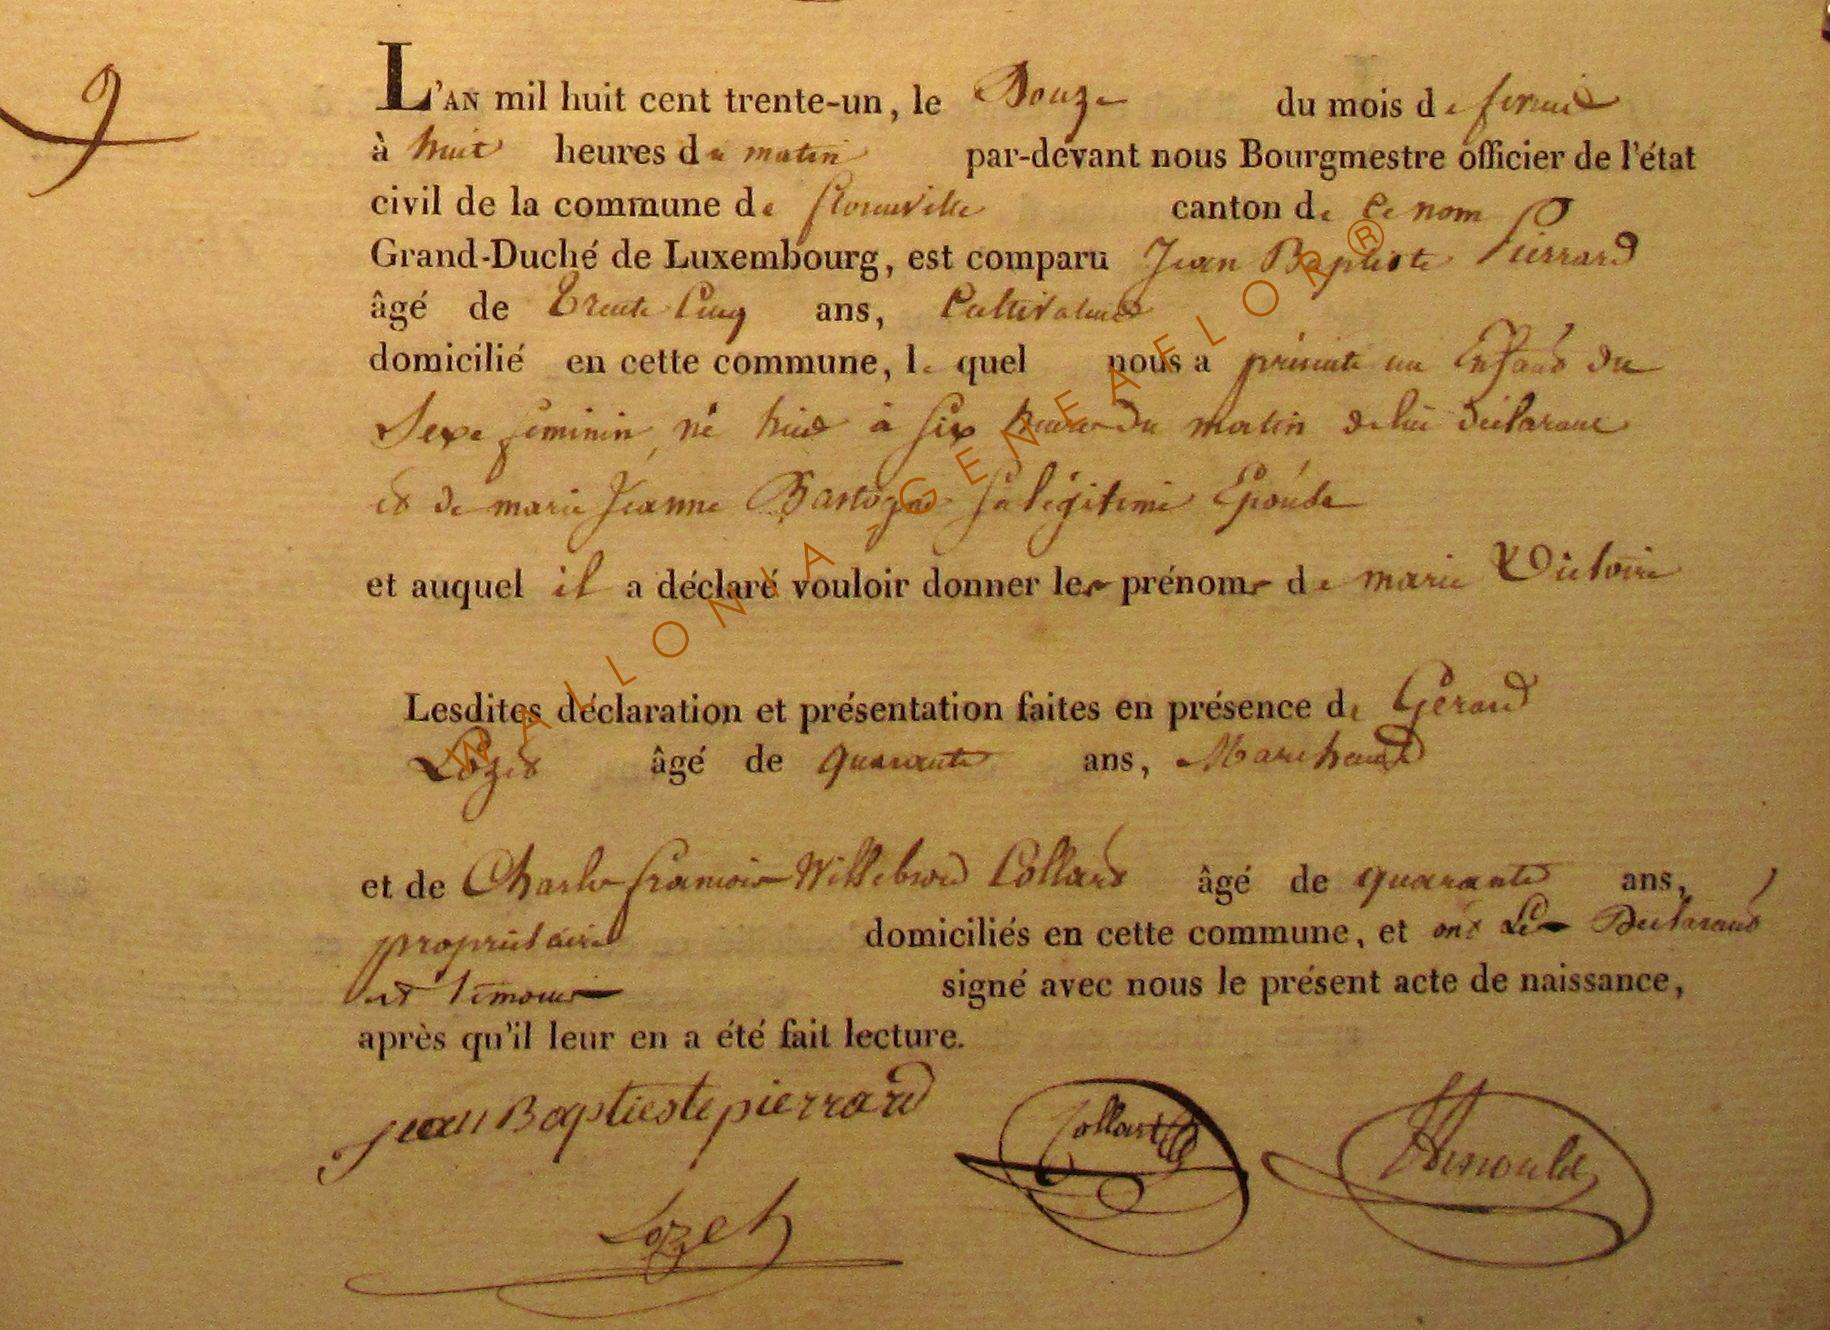 9
L'AN mil huit cent trente-un, le Douze du mois de fevrier
à huit heures du matin par-devant nous Bourgmestre officier de l'état
civil de la commune de florenville canton de ce nom
Grand-Duché de Luxembourg, est comparu Jean Baptiste Pierrard
âgé de Trente Cinq ans, Cultivateur
domicilié en cette commune, le quel nous a présenté un Enfant du
Sexe féminin, né à six heures du matin de lui déclarant
et de marie Jeanne Bastogne sa légitime Epouse
et auquel il a déclaré vouloir donner les prénoms de marie Victoire
Lesdites déclaration et présentation faites en présence de Gérard
Lozet âgé de quarante ans, Marchand
et de Charles françois Willebrord Collard âgé de quarante ans,
propriétaire domiciliés en cette commune, et ont Les Declarant
et temoins signé avec nous le présent acte de naissance,
après qu'il leur en a été fait lecture.
jean Baptieste pierrard
Collart
Arnould
Lozet
WALLONIA-GENEAFLOR®